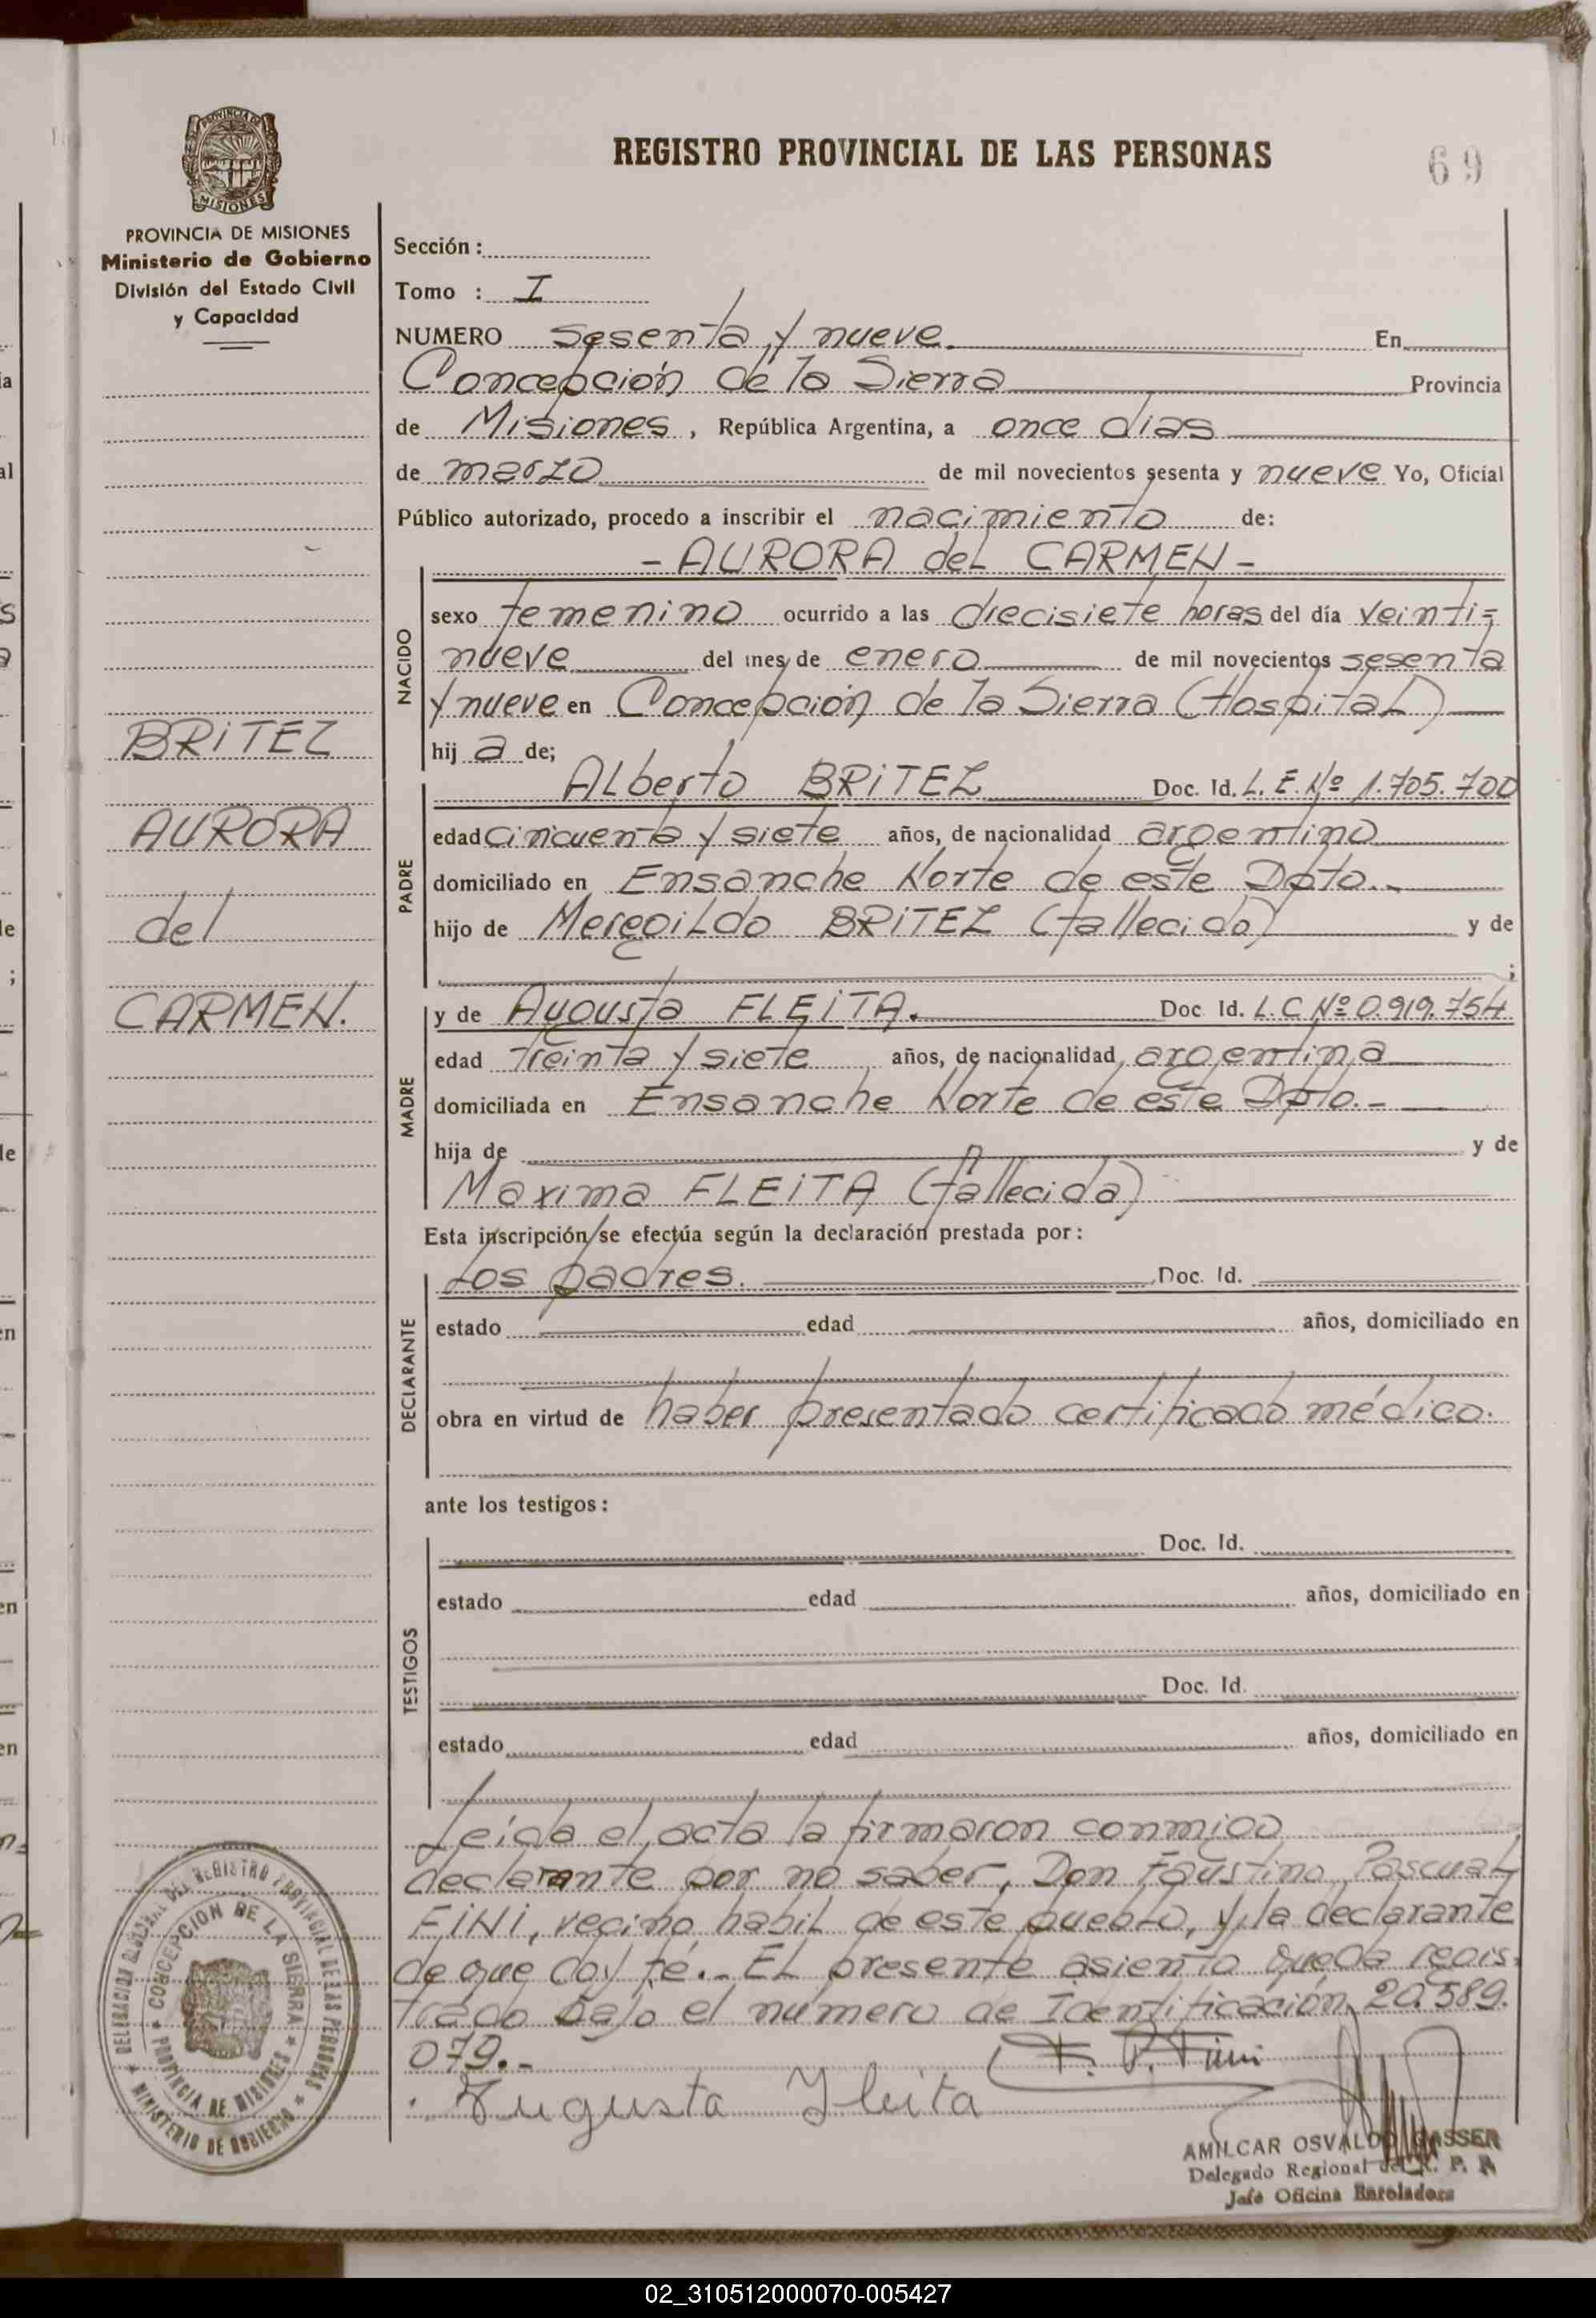 REGISTRO PROVINCIAL DE LAS PERSONAS
69
PROVINCIA DE MISIONES
MISIONES
PROVINCIA DE MISIONES
Ministerio de Gobierno
División del Estado Civil
y Capacidad
BRITEZ
AURORA
del
CARMEN.
Sección :
Tomo : I
NUMERO sesenta y nueve. En
Concepción de la Sierra Provincia
de Misiones, República Argentina, a once días
de marzo de mil novecientos sesenta y nueve Yo, Oficial
Público autorizado, procedo a inscribir el nacimiento de:
- AURORA del CARMEN -
NACIDO
sexo femenino ocurrido a las diecisiete horas del día veinti=
nueve del mes de enero de mil novecientos sesenta
y nueve en Concepción de la Sierra (Hospital)
hij a de;
PADRE
Alberto BRITEZ Doc. Id. L. E. Nº 1.705.700
edad cincuenta y siete años, de nacionalidad argentino
domiciliado en Ensanche Norte de este Dpto.-
hijo de Meregildo BRITEZ (fallecido) y de
;
MADRE
y de Augusta FLEITA. Doc. Id. L.C Nº 0.919.754
edad treinta y siete años, de nacionalidad argentina
domiciliada en Ensanche Norte de este Dpto.-
hija de y de
Maxima FLEITA (fallecida)
Esta inscripción se efectúa según la declaración prestada por :
DECLARANTE
Los padres. Doc. Id.
estado edad años, domiciliado en
obra en virtud de haber presentado certificado médico.
ante los testigos :
TESTIGOS
Doc. Id.
estado edad años, domiciliado en
Doc. Id.
estado edad años, domiciliado en
Leída el acta la firmaron conmigo
declarante por no saber, Don Faustino Pascual
FINI, vecino habil de este pueblo, y la declarante
de que doy fé.- El presente asiento queda regis-
trado bajo el número de Identificación 20.589.
079.-
F. P. Fini
Augusta Fleita
AMILCAR OSVALDO GASSER
Delegado Regional del R. P. P.
Jefe Oficina Enroladora
DELEGACION REGIONAL DEL REGISTRO PROVINCIAL DE LAS PERSONAS
MINISTERIO DE GOBIERNO
CONCEPCION DE LA SIERRA
PROVINCIA DE MISIONES
02_310512000070-005427